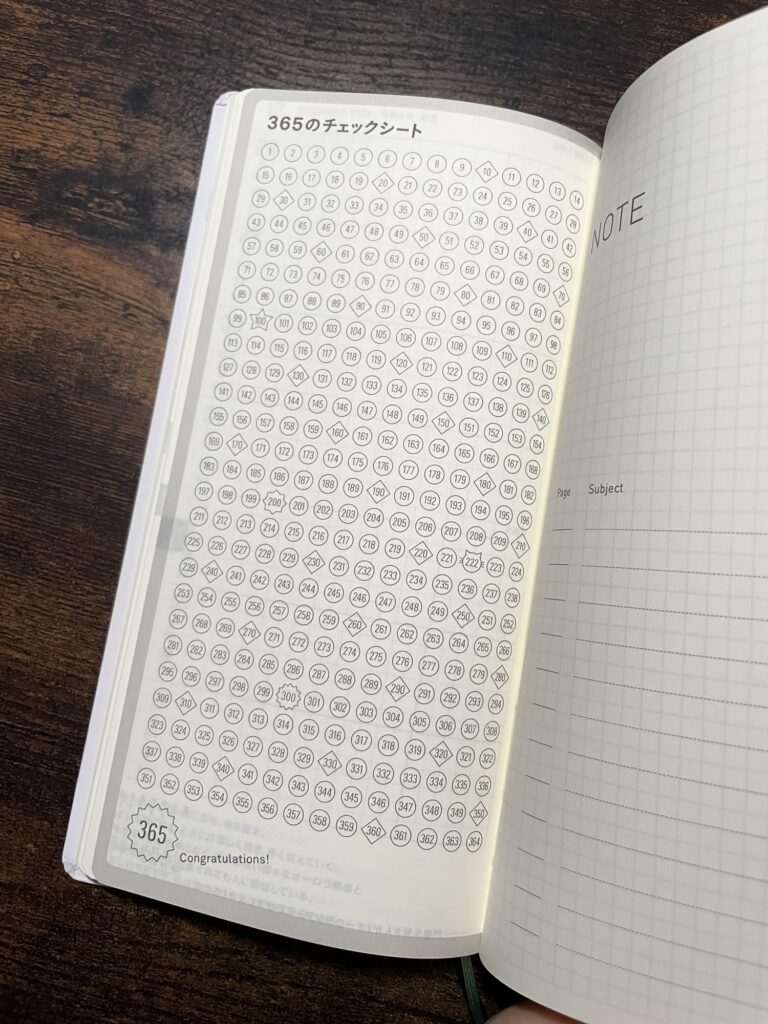 365のチェックシート
1 2 3 4 5 6 7 8 9 10 11 12 13 14
15 16 17 18 19 20 21 22 23 24 25 26 27 28
29 30 31 32 33 34 35 36 37 38 39 40 41 42
43 44 45 46 47 48 49 50 51 52 53 54 55 56
57 58 59 60 61 62 63 64 65 66 67 68 69 70
71 72 73 74 75 76 77 78 79 80 81 82 83 84
85 86 87 88 89 90 91 92 93 94 95 96 97 98
99 100 101 102 103 104 105 106 107 108 109 110 111 112
113 114 115 116 117 118 119 120 121 122 123 124 125 126
127 128 129 130 131 132 133 134 135 136 137 138 139 140
141 142 143 144 145 146 147 148 149 150 151 152 153 154
155 156 157 158 159 160 161 162 163 164 165 166 167 168
169 170 171 172 173 174 175 176 177 178 179 180 181 182
183 184 185 186 187 188 189 190 191 192 193 194 195 196
197 198 199 200 201 202 203 204 205 206 207 208 209 210
211 212 213 214 215 216 217 218 219 220 221 222 223 224
225 226 227 228 229 230 231 232 233 234 235 236 237 238
239 240 241 242 243 244 245 246 247 248 249 250 251 252
253 254 255 256 257 258 259 260 261 262 263 264 265 266
267 268 269 270 271 272 273 274 275 276 277 278 279 280
281 282 283 284 285 286 287 288 289 290 291 292 293 294
295 296 297 298 299 300 301 302 303 304 305 306 307 308
309 310 311 312 313 314 315 316 317 318 319 320 321 322
323 324 325 326 327 328 329 330 331 332 333 334 335 336
337 338 339 340 341 342 343 344 345 346 347 348 349 350
351 352 353 354 355 356 357 358 359 360 361 362 363 364
365
Congratulations!
NOTE
Page Subject